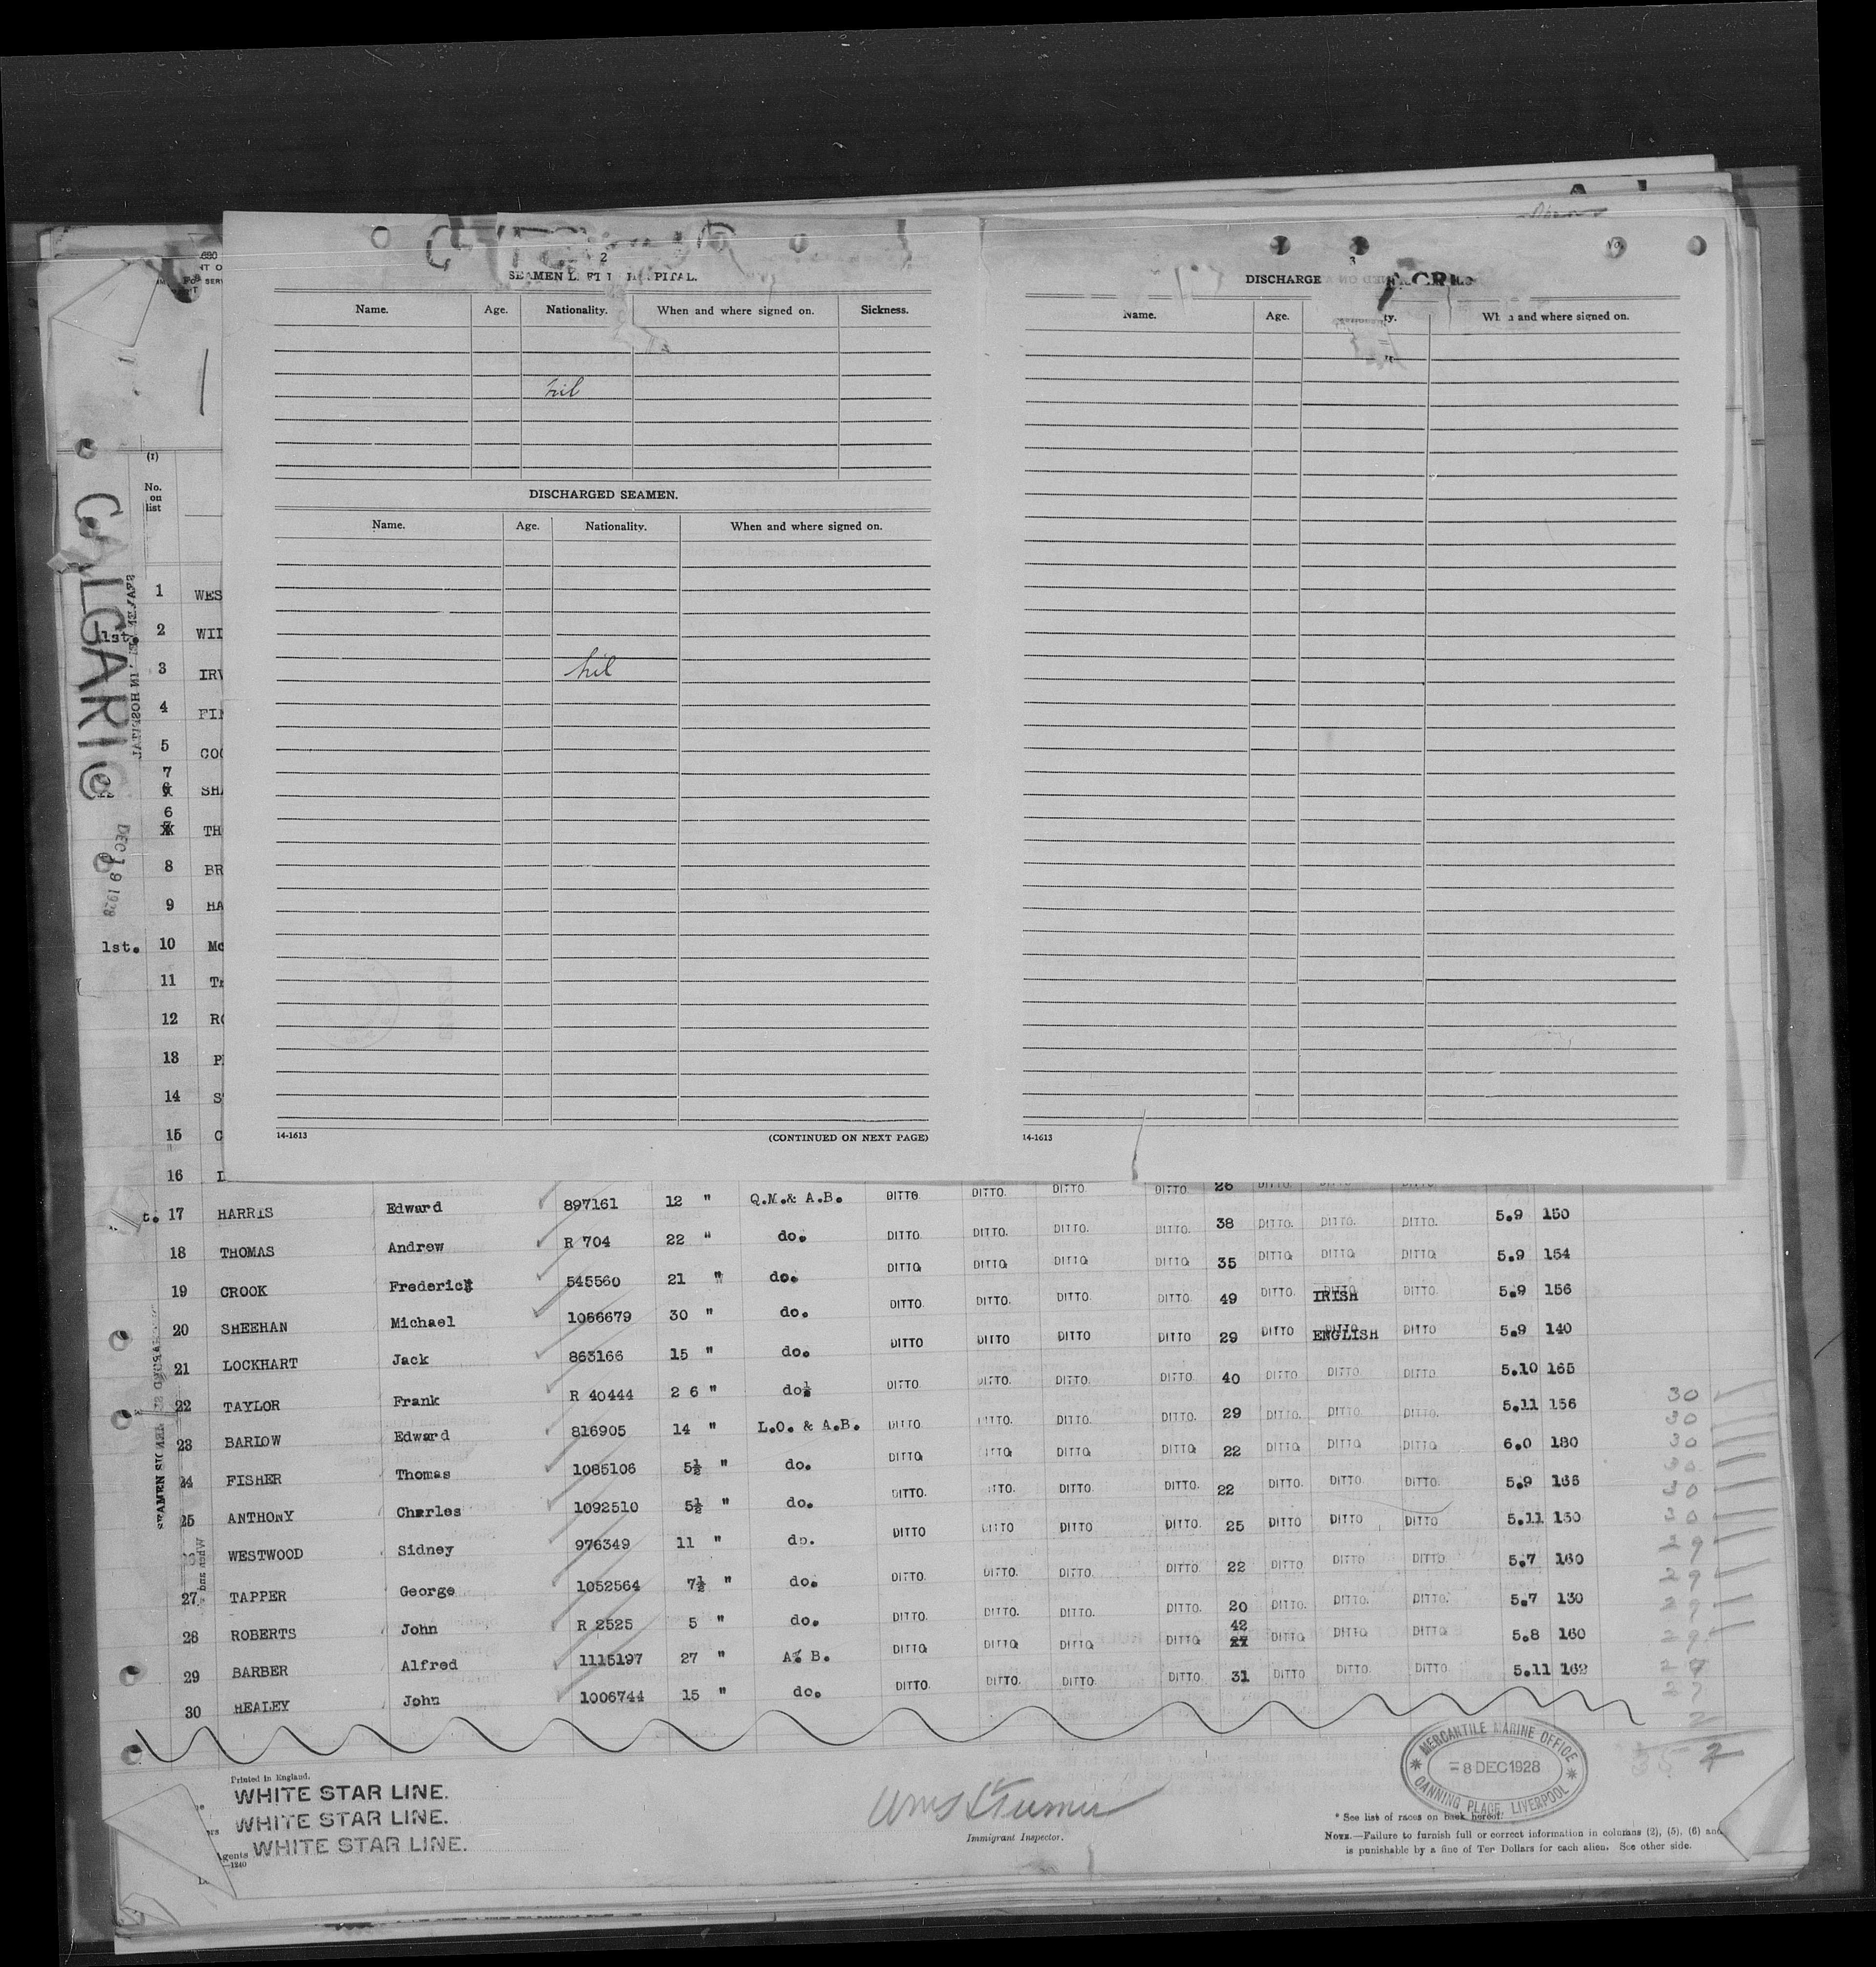 2
SEAMEN L FT I H PITAL.
Name. Age. Nationality. When and where signed on. Sickness.
nil
DISCHARGED SEAMEN.
Name. Age. Nationality. When and where signed on.
nil
14-1613 (CONTINUED ON NEXT PAGE)
3
DISCHARGE
Name. Age. ty. Wh and where signed on.
14-1613
CALGARIC
DEC 19 1928
SEAMEN LEFT IN HOSPITAL
(1)
No. on list
1 WES
1st. 2 WII
3 IRV
4 FIN
5 COO
7
6 SHA
6
7 TH
8 BR
9 HA
1st. 10 Mc
11 Tr
12 RO
13 P
14 S
15 C
16
26 DITTO. DITTO. DITTO.
t. 17 HARRIS Edward 897161 12 " Q.M.& A.B. DITTO. DITTO. DITTO. DITTO. 38 DITTO. DITTO. DITTO. 5.9 150
18 THOMAS Andrew R 704 22 " do. DITTO. DITTO. DITTO. DITTO. 35 DITTO DITTO DITTO 5.9 154
19 CROOK Frederick 545560 21 " do. DITTO DITTO DITTO DITTO 49 DITTO. IRISH DITTO. 5.9 156
20 SHEEHAN Michael 1056679 30 " do. DITTO. DITTO. DITTO. DITTO. 29 DITTO ENGLISH DITTO 5.9 140
21 LOCKHART Jack 863166 15 " do. DITTO DITTO DITTO DITTO 40 DITTO DITTO. DITTO. 5.10 165
22 TAYLOR Frank R 40444 2 6 " do DITTO. DITTO. DITTO. DITTO. 29 DITTO. DITTO. DITTO. 5.11 156
23 BARLOW Edward 816905 14 " L.O. & A.B. DITTO. DITTO. DITTO. DITTO. 22 DITTO DITTO DITTO 6.0 180
24 FISHER Thomas 1085106 5½ " do. DITTO DITTO DITTO DITTO 22 DITTO. DITTO. DITTO. 5.9 166
25 ANTHONY Charles 1092510 5½ " do. DITTO. DITTO. DITTO. DITTO. 25 DITTO DITTO DITTO 5.11 150
WESTWOOD Sidney 976349 11 " do. DITTO DITTO DITTO DITTO. 22 DITTO. DITTO. DITTO. 5.7 160
27 TAPPER George 1052564 7½ " do. DITTO. DITTO. DITTO. DITTO. 20 DITTO. DITTO. DITTO. 5.7 130
28 ROBERTS John R 2525 5 " do. DITTO. DITTO. DITTO. DITTO 42 27 DITTO DITTO DITTO 5.8 160
29 BARBER Alfred 1115197 27 " A. B. DITTO DITTO DITTO DITTO. 31 DITTO DITTO. DITTO. 5.11 162
30 HEALEY John 1006744 15 " do. DITTO. DITTO. DITTO.
30
30
30
30
30
30
29
29
29
29
Printed in England.
WHITE STAR LINE.
WHITE STAR LINE.
Agents WHITE STAR LINE.
—1240
Immigrant Inspector.
MERCANTILE MARINE OFFICE
8 DEC 1928
CANNING PLACE, LIVERPOOL
* See list of races on back hereof.
NOTE.—Failure to furnish full or correct information in columns (2), (5), (6) and
is punishable by a fine of Ten Dollars for each alien. See other side.